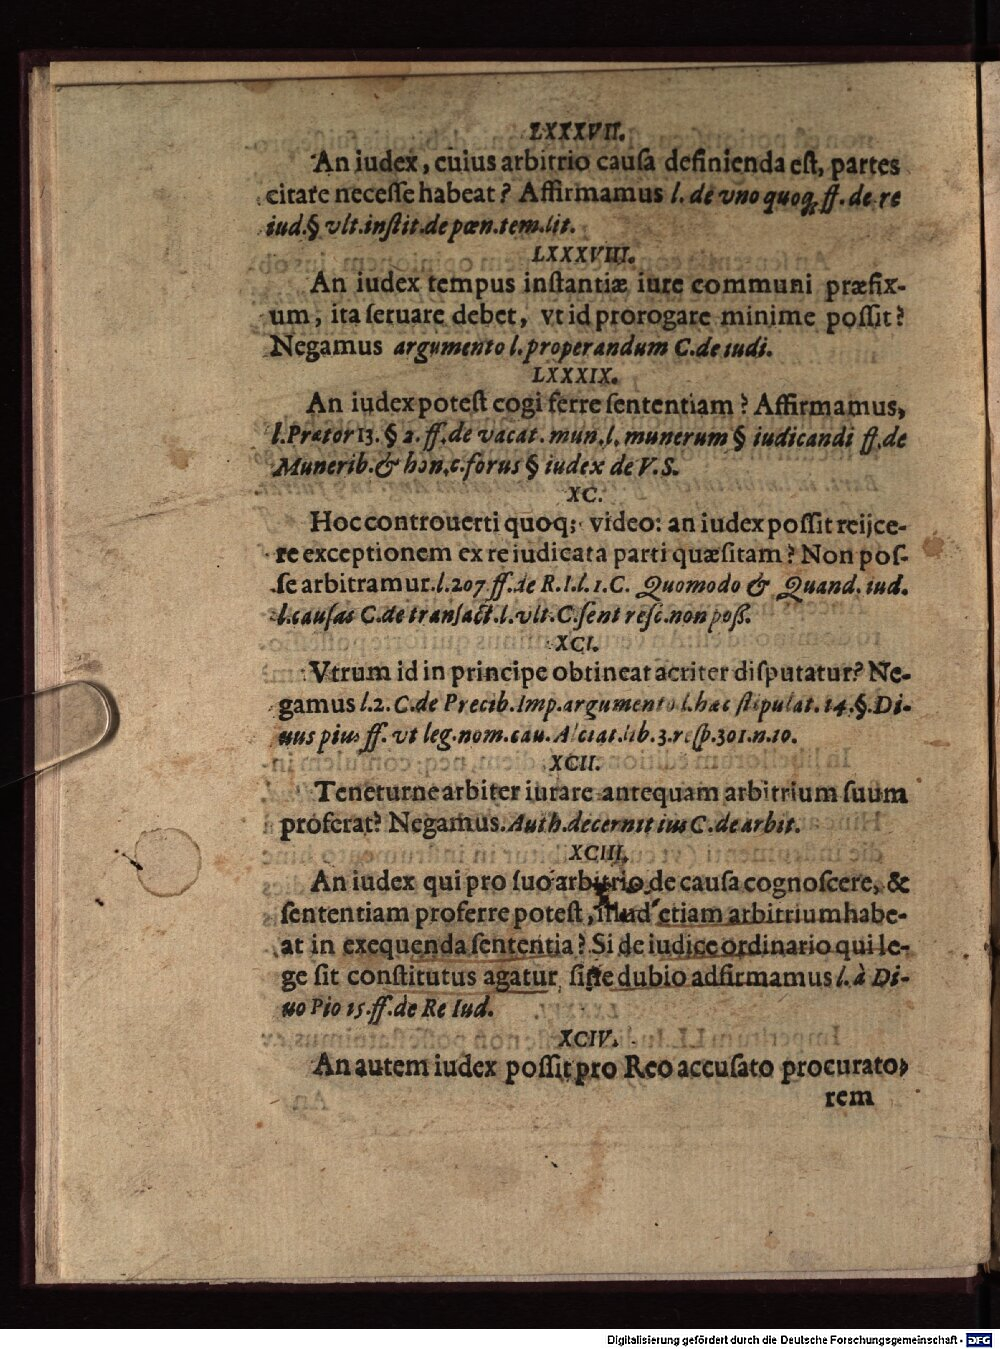 LXXXVII.
An iudex, cuius arbitrio cauſa definienda eſt, partes
citare neceſſe habeat? Affirmamus l. de vno quoq; ff. de re
iud. § vlt. inſtit. de pœn. tem. lit.
LXXXVIII.
An iudex tempus inſtantiæ iure communi præfix-
um, ita ſeruare debet, vt id prorogare minime poſſit?
Negamus argumento l. properandum C. de iudi.
LXXXIX.
An iudex poteſt cogi ferre ſententiam? Affirmamus,
l. Prætor 13. § 2. ff. de vacat. mun. l. munerum § iudicandi ff. de
Munerib. & hon. c. forus § iudex de V. S.
XC.
Hoc controuerti quoq; video: an iudex poſſit reijce-
re exceptionem ex re iudicata parti quæſitam? Non poſ-
ſe arbitramur. l. 207 ff. de R. I. l. 1. C. Quomodo & Quand. iud.
l. cauſas C. de tranſact. l. vlt. C. ſent reſc. non poß.
XCI.
Vtrum id in principe obtineat acriter diſputatur? Ne-
gamus l. 2. C. de Precib. Imp. argumento l. hac ſtipulat. 14. §. Di-
uus pius ff. vt leg. nom. cau. Alciat. lib. 3. reſp. 301. n. 10.
XCII.
Teneturne arbiter iurare antequam arbitrium ſuum
proferat? Negamus. Auth. decernit ius C. de arbit.
XCIII.
An iudex qui pro ſuo arbitrio de cauſa cognoſcere, &
ſententiam proferre poteſt, illud etiam arbitrium habe-
at in exequenda ſententia? Si de iudice ordinario qui le-
ge ſit conſtitutus agatur, ſine dubio adfirmamus l. à Di-
uo Pio 15. ff. de Re Iud.
XCIV.
An autem iudex poſſit pro Reo accuſato procurato-
rem
Digitalisierung gefördert durch die Deutsche Forschungsgemeinschaft - DFG